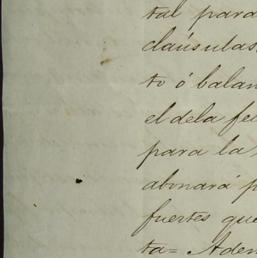 tal para
claúsulas
to ó balan
el dela fe
para la
abonará p
fuertes que
ta= Aden